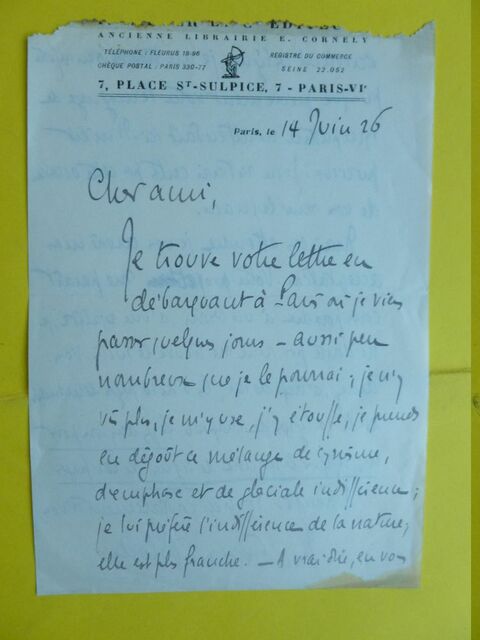 ANCIENNE LIBRAIRIE E. CORNELY
TÉLÉPHONE : FLEURUS 18-96
CHÈQUE POSTAL : PARIS 330-77
REGISTRE DU COMMERCE
SEINE 22.052
7, PLACE ST-SULPICE, 7 - PARIS-VIe
Paris, le 14 Juin 26
Cher ami,
Je trouve votre lettre en
débarquant à Paris où je viens
passer quelques jours – aussi peu
nombreux que je le pourrai ; je n'y
vis plus, je m'y use, j'y étouffe, je prends
en dégoût ce mélange de cynisme,
d'emphase et de glaciale indifférence ;
je lui préfère l'indifférence de la nature,
elle est plus franche. – A vrai dire, en vous